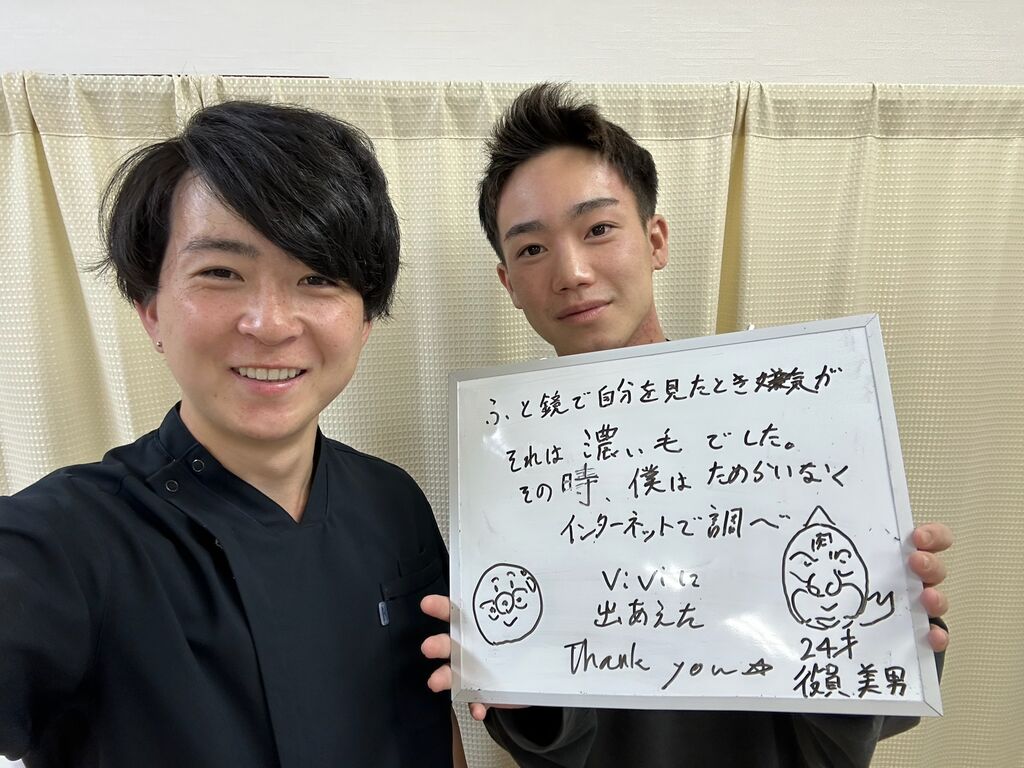 ふと鏡で自分を見たとき嫌気が
それは濃い毛でした。
その時、僕はためらいなく
インターネットで調べ
ViViに
出あえた
Thank you☆
肉
24才
役員 美男